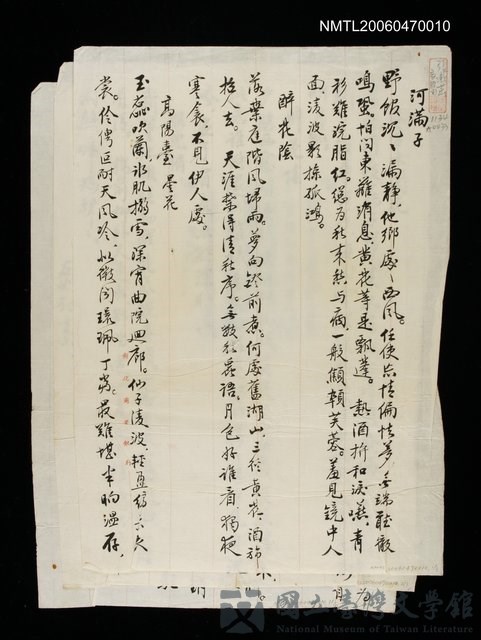 NMTL20060470010
河滿子
野館沉、漏靜、他鄉處、西風。任使無情偏惜夢、無端聽徹
鳴蛩。怕問東籬消息、黃花等是飄蓬。 熱酒拚和淚嚥、青
衫難浣脂紅。總為秋來愁与病、一般顦顇芙蓉。羞見鏡中人
面、淩波影掠孤鴻。
醉花陰
落葉庭階風埽雨。夢向鐙前煮。何處舊湖山、三徑黃花、酒旆
招人去。 天涯禁得清秋序。無數蟲語、月色好誰看、獨夜
寒衾、不見伊人處。
高陽臺 曇花
玉蕊吹蘭、冰肌搓雪、深宵曲院迴廊。仙子淩波、輕盈縞衣
裳。伶俜叵耐天風冷、似微聞環珮丁當。最難堪、半晌溫存、
國立臺灣文學館
National Museum of Taiwan Literature